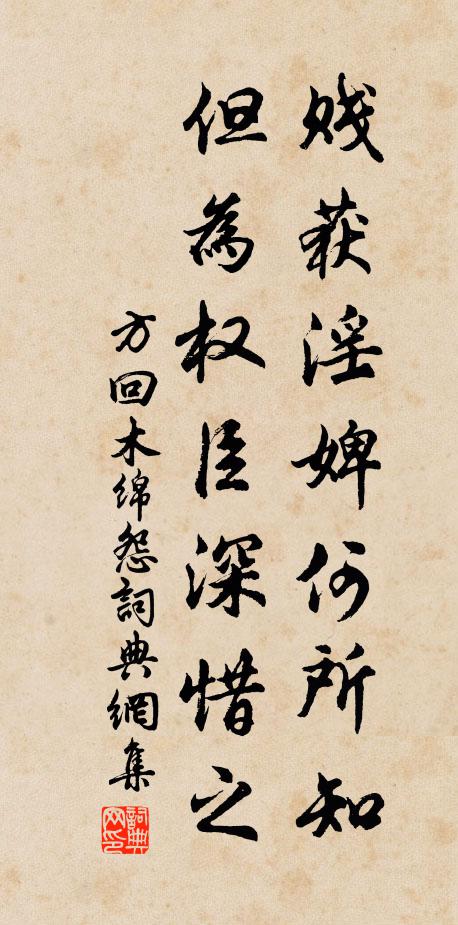 贱获淫婢何所知
但為权臣深惜之
方回木绵怨詞典網集
詞典网印